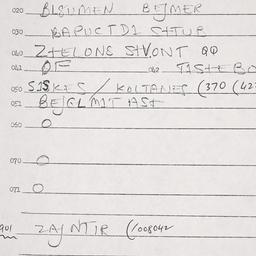 020 BLSUMEN BEJMER
030 BAPUCTD1 STTUB
040 ZTELONE STVONT QQ
041 OF 042 TISTEBO
050 SISKES / KOLTANES (370 (42
051 BEJGLMIT AST
060 O
070 O
071 O
901 ZAJNTIR (1008042